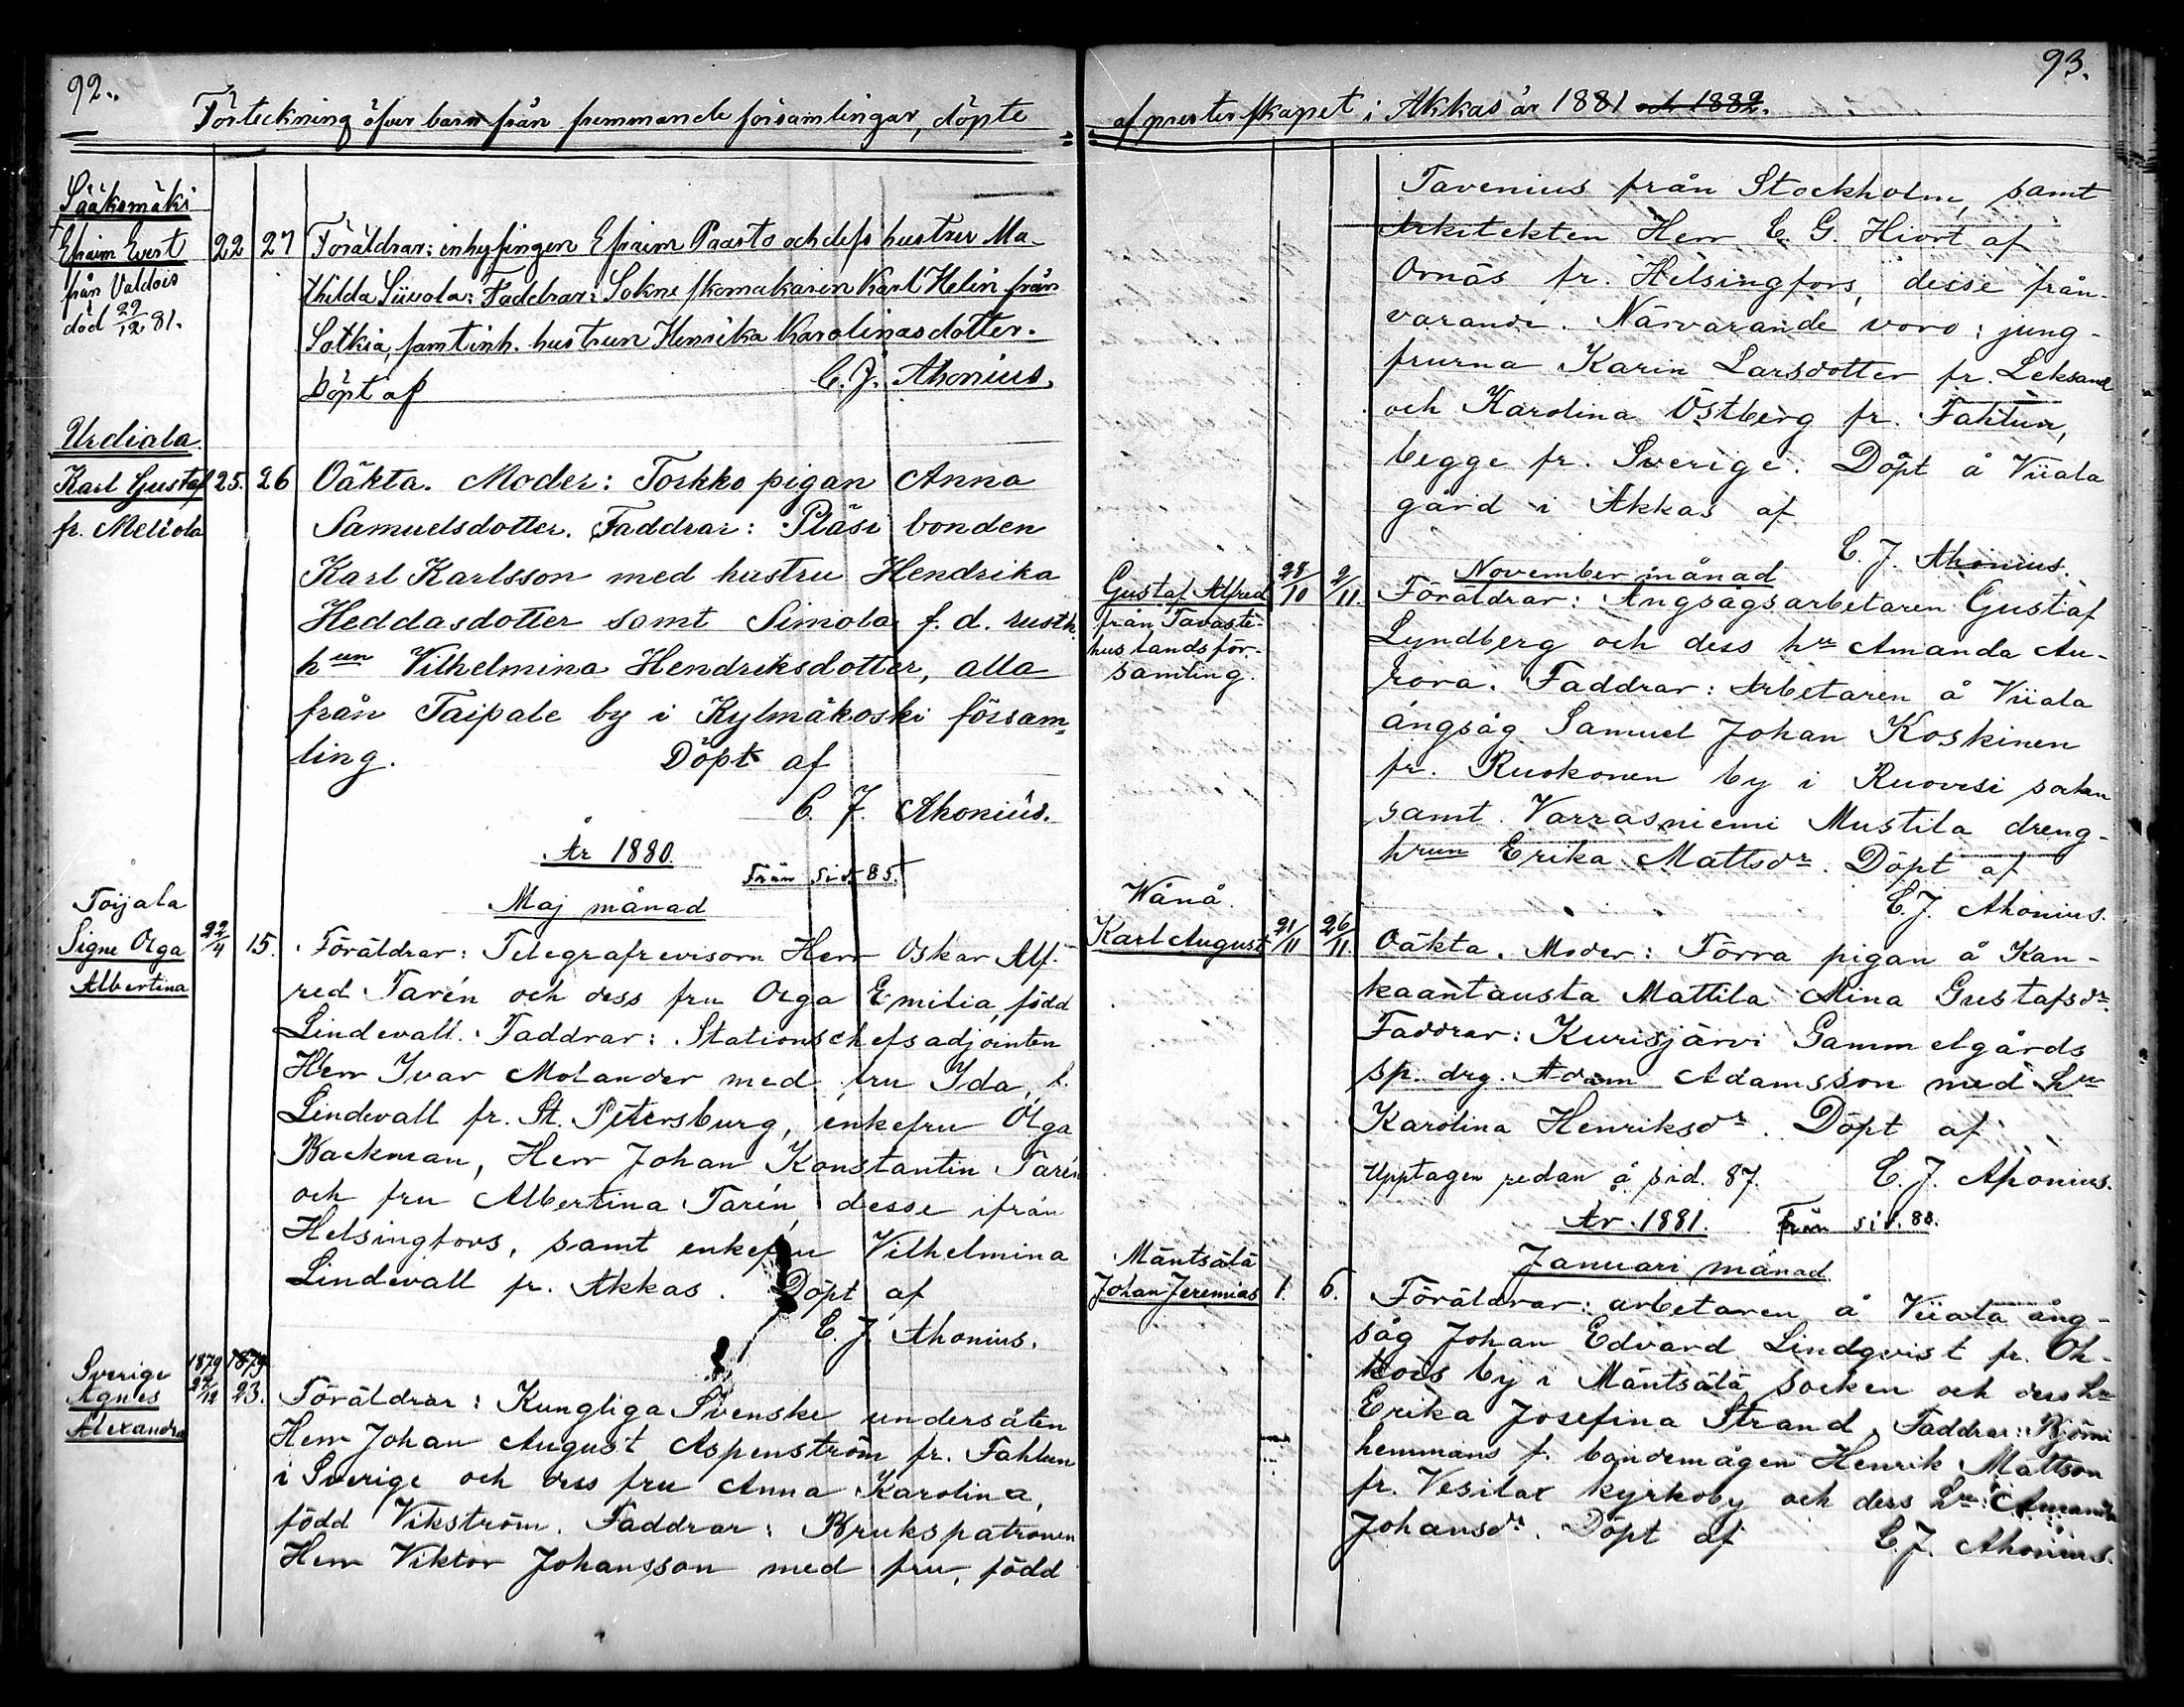 92.
Förteckning öfver barn från fremmande församlingar, döpte
Sääksmäki
Efraim Evert
från Valdois
död 27/12 81.
22 27
Föräldrar: inhysingen Efraim Paasto och dess hustru Ma-
thilda Siivola: Faddrar: Sokneskomakaren Karl Helin från
Sotkia, samt inh. hustrun Henrika Karolinasdotter.
Döpt af C. J. Ahonius.
Urdiala.
Karl Gustaf
fr. Meliola
25. 26
Oäkta. Moder: Torkko pigan Anna
Samuelsdotter. Faddrar: Pläsi bonden
Karl Karlsson med hustru Hendrika
Heddasdotter samt Simola f. d. rusth.
hun Vilhelmina Hendriksdotter, alla
från Taipale by i Kylmäkoski försam-
ling. Döpt af
C. J. Ahonius.
År 1880.
Från sid. 85.
Maj månad
Toijala
Signe Olga
Albertina
22/4 15.
Föräldrar: Telegrafrevisorn Herr Oskar Alf-
red Tarén och dess fru Olga Emilia, född
Lindevall. Faddrar: Stationschefsadjointen
Herr Ivar Molander med fru Ida, f.
Lindevall fr. St. Petersburg, enkefru Olga
Backman, Herr Johan Konstantin Tarén
och fru Albertina Tarén, desse ifrån
Helsingfors, samt enkefru Vilhelmina
Lindevall fr. Akkas. Döpt af
C. J. Ahonius.
Sverige
Agnes
Alexandra
1879 1879
/12 23.
Föräldrar: Kungliga Svenske undersåten
Herr Johan August Aspenström fr. Fahlun
i Sverige och dess fru Anna Karolina,
född Vikström. Faddrar: Brukspatronen
Herr Viktor Johansson med fru, född
93.
af presterskapet i Akkas år 1881 och 1882.
Tavenius från Stockholm, samt
Arkitekten Herr C. G. Hiort af
Ornäs fr. Helsingfors, desse från-
varande. Närvarande voro: jung-
frurna Karin Larsdotter fr. Leksand
och Karolina Östberg fr. Fahlun,
begge fr. Sverige. Döpt å Viiala
gård i Akkas af
C. J. Ahonius.
November månad
Gustaf Alfred
från Tavaste-
hus landsför-
samling.
28/10 2/11.
Föräldrar: Ångsågsarbetaren Gustaf
Lyndberg och dess hu Amanda Au-
rora. Faddrar: Arbetaren å Viiala
ångsåg Samuel Johan Koskinen
fr. Ruokonen by i Ruovesi socken
samt Varrasniemi Mustila dreng-
hrun Erika Mattsdr. Döpt af
C. J. Ahonius.
Wånå.
Karl August
21/11 26/11.
Oäkta. Moder: Förra pigan å Kan-
kaantausta Mattila Mina Gustafsdr.
Faddrar: Kurisjärvi Gammelgårds
sp. drg. Adam Adamsson med hu
Karolina Henriksdr. Döpt af
Upptagen redan å sid. 87. C. J. Ahonius.
År 1881. från sid. 88.
Januari månad
Mäntsälä
Johan Jeremias
1. 6.
Föräldrar: arbetaren å Viiala ång-
såg Johan Edvard Lindqvist fr. Oh-
kois by i Mäntsälä socken och dess hu
Erika Josefina Strand. Faddrar: Björni
hemmans f. bondemågen Henrik Mattson
fr. Vesilax kyrkoby och dess hu: Amanda
Johansdr. Döpt af C. J. Ahonius.